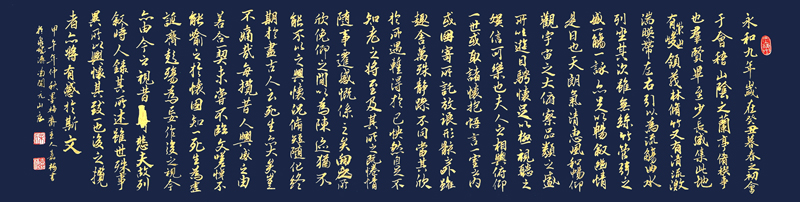 永和九年歲在癸丑暮春之初會
于會稽山陰之蘭亭脩稧事
也群賢畢至少長咸集此地
有崇山峻領茂林脩竹又有清流激
湍暎帶左右引以為流觴曲水
列坐其次雖無絲竹管弦之
盛一觴一詠亦足以暢敘幽情
是日也天朗氣清惠風和暢仰
觀宇宙之大俯察品類之盛
所以遊目騁懷足以極視聽之
娛信可樂也夫人之相與俯仰
一世或取諸懷抱悟言一室之內
或因寄所託放浪形骸之外雖
趣舍萬殊靜躁不同當其欣
於所遇蹔得於己快然自足不
知老之將至及其所之既惓情
隨事遷感慨係之矣向之所
欣俛仰之閒以為陳迹猶不
能不以之興懷況脩短隨化終
期於盡古人云死生亦大矣豈
不痛哉每攬昔人興感之由
若合一契未嘗不臨文嗟悼不
能喻之於懷固知一死生為虛
誕齊彭殤為妄作後之視今
亦由今之視昔悲夫故列
敘時人錄其所述雖世殊事
異所以興懷其致一也後之攬
者亦將有感於斯文
甲午年仲秋